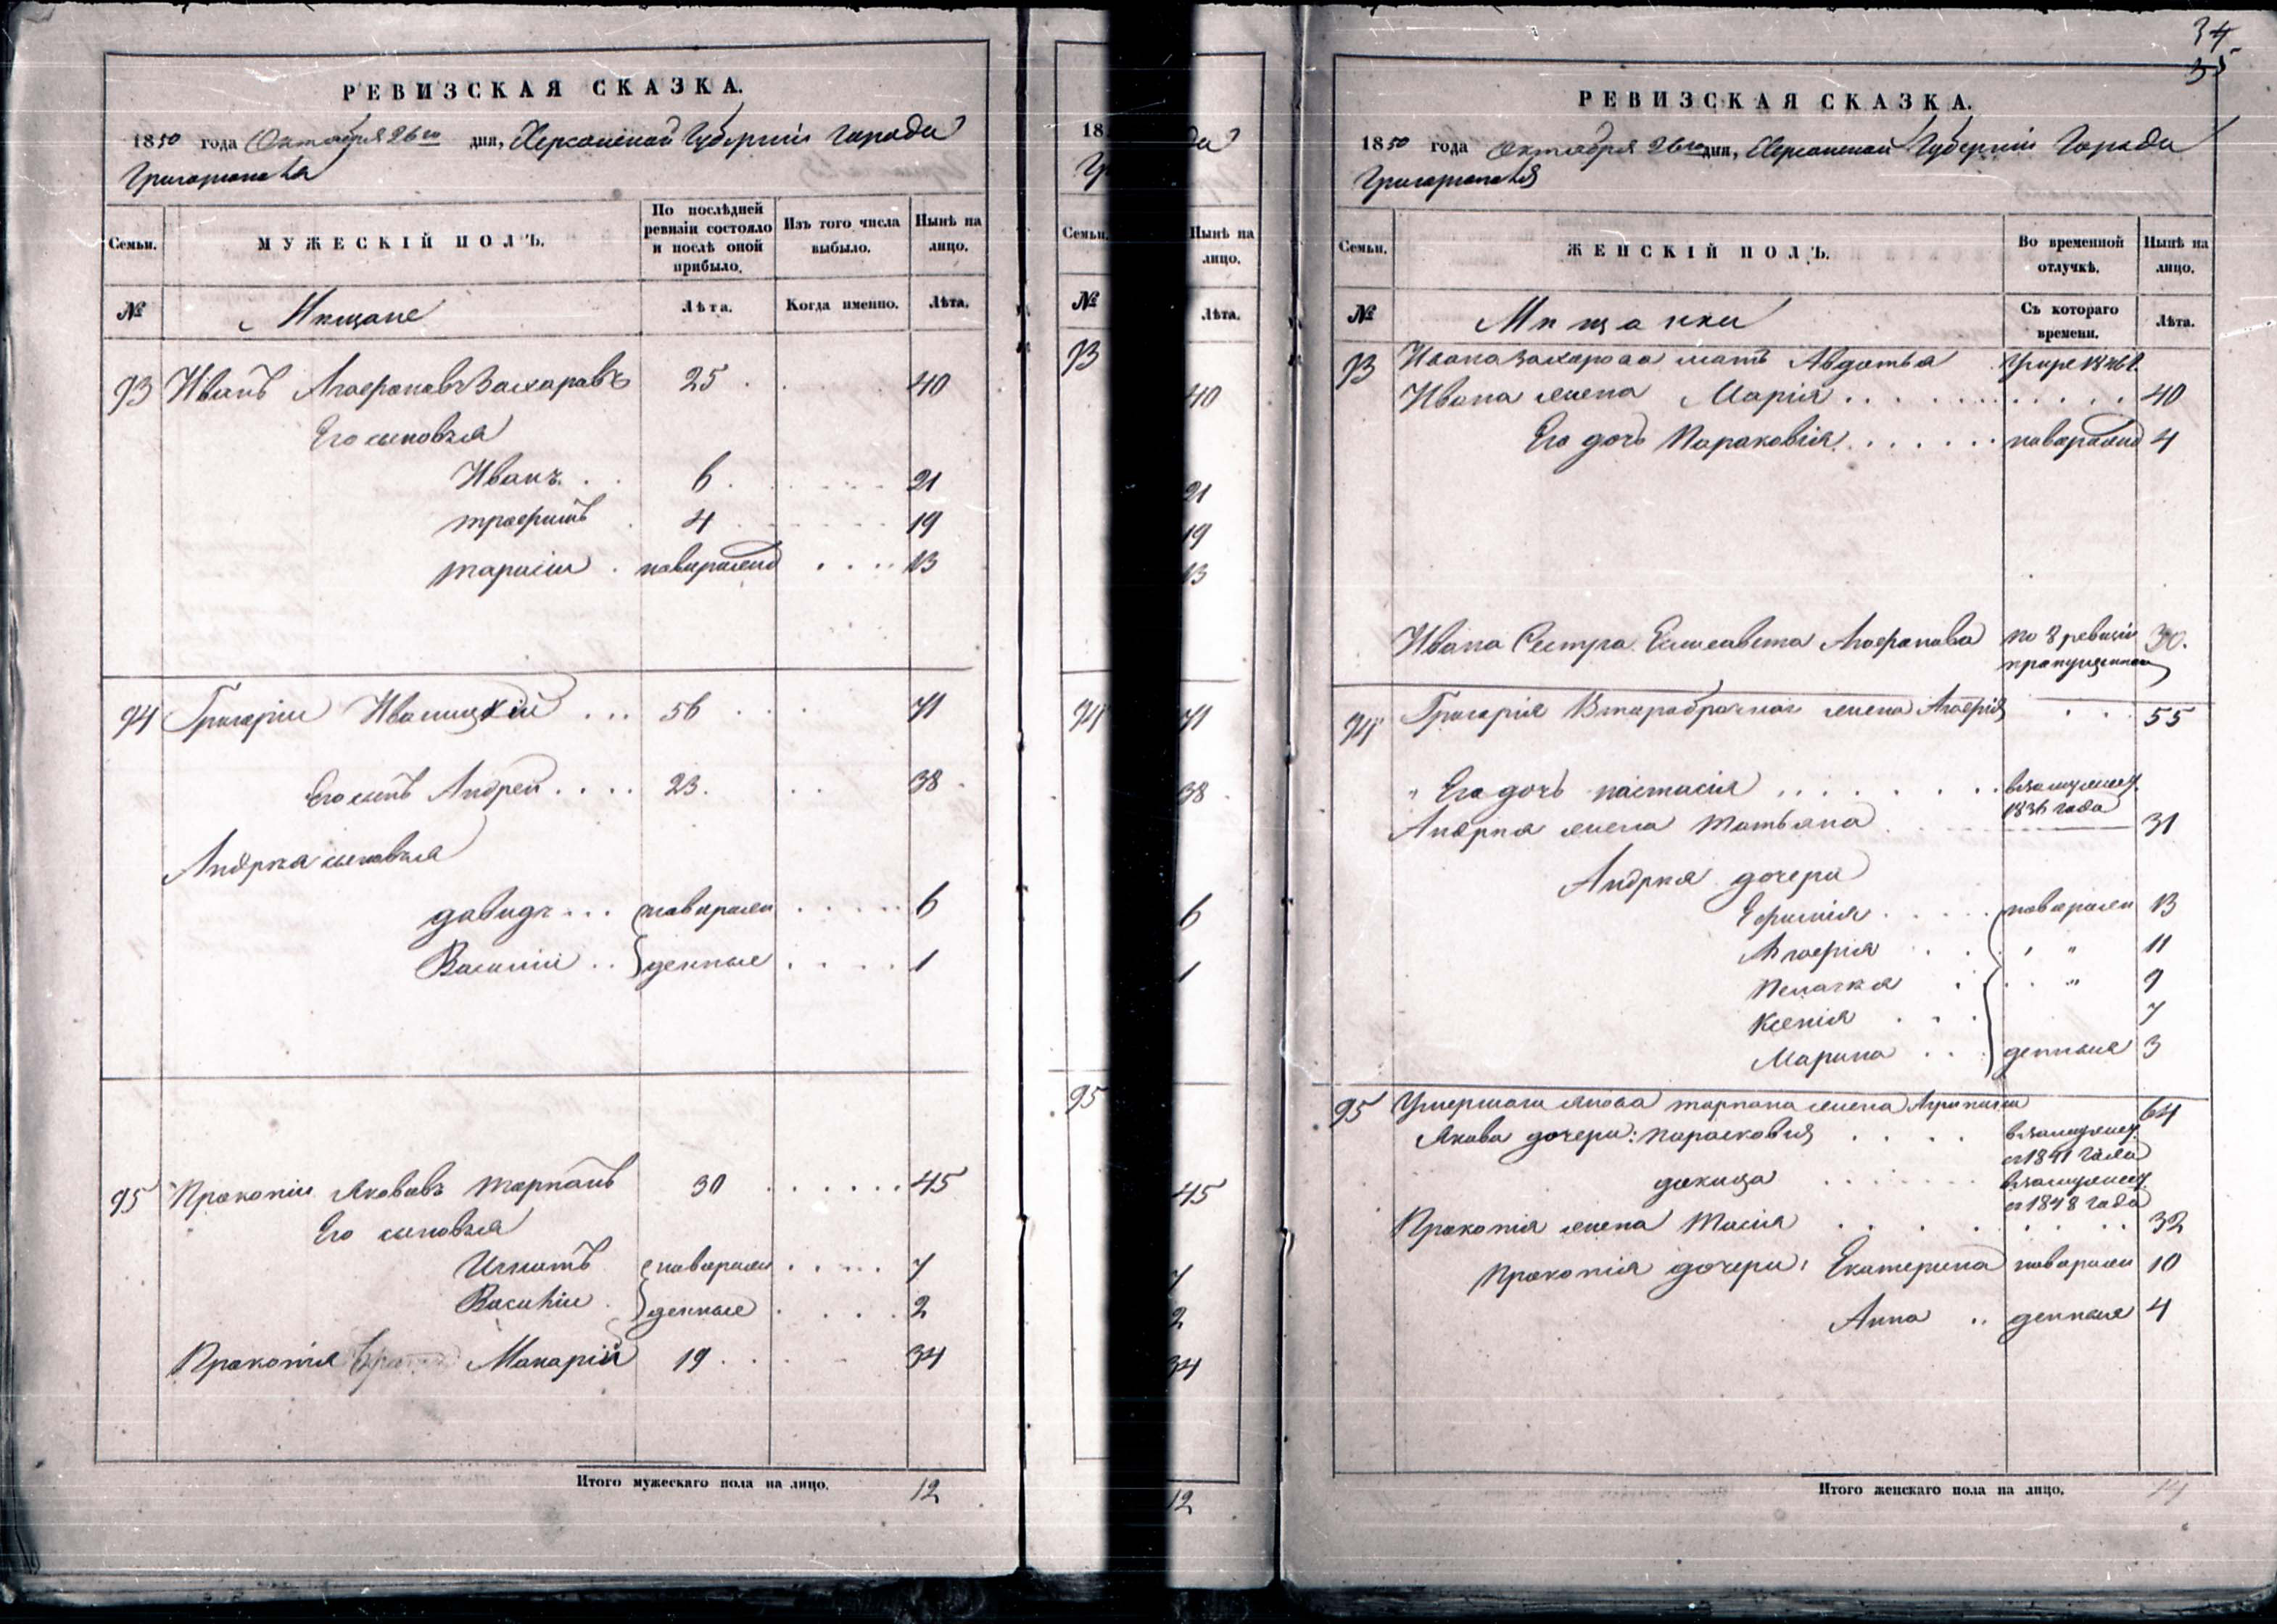 РЕВИЗСКАЯ СКАЗКА.
1850 года Октября 26го дня, Херсонской Губернии города
Григориополя
Семьи.
МУЖЕСКІЙ ПОЛЪ.
По послѣдней ревизіи состояло и послѣ оной прибыло.
Изъ того числа выбыло.
Нынѣ на лицо.
№
Мѣщане
Лѣта.
Когда именно.
Лѣта.
93 Иванъ Агафоновъ Захаровъ 25 40
Его сыновья
Иванъ 6 21
Трофимъ 4 19
тарасіи новорожд 13
94 Григоріи Иваницкій 56 71
Его сынъ Андрей 23 38
Андрея сыновья
давидъ новорожд 6
Василіи денные 1
95 Прокопіи Яковъ тарпанъ 30 45
Его сыновья
Игнатъ новорож 7
Василіи денные 2
Прокопія братъ Макарій 19 34
Итого мужескаго пола на лицо. 12
18 да
Гр
Семьи.
Нынѣ на лицо.
№
Лѣта.
93
40
21
19
13
94 71
38
6
1
95
45
7
2
34
12
34
35
РЕВИЗСКАЯ СКАЗКА.
1850 года Октября 26го дня, Херсонской Губерніи Города
Григориополя
Семьи.
ЖЕНСКІЙ ПОЛЪ.
Во временной отлучкѣ.
Нынѣ на лицо.
№
Мѣщанки
Съ котораго времени.
Лѣта.
93 Ивана Захарова мать Авдотья
Ивана жена Марія 40
Его дочь Параковія новорожд 4
Ивана Сестра Елисавета Агафонова по 8 ревизіи 30.
пропущенная
94 Григорія Второбрачная жена Агафія 55
Его дочь настасія взамужест.
1836 года
Андрея жена Татьяна 31
Андрея дочери
Ефимія новорож 13
Агафія " 11
Пелагея " 9
Ксенія 7
Марина денныя 3
95 Умершаго якова тарпана жена Агрипина 64
Якова дочери: парасковія взамужест.
съ 1841 года
докица взамужест.
съ 1848 года
Прокопія жена Тасія 32
Прокопія дочери: Екатерина новорож 10
Анна денныя 4
Итого женскаго пола на лицо. 14